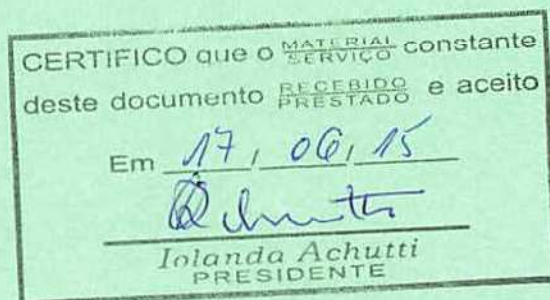 CERTIFICO que o MATERIAL SERVIÇO constante
deste documento RECEBIDO PRESTADO e aceito
Em 17, 06, 15
Iolanda Achutti
PRESIDENTE